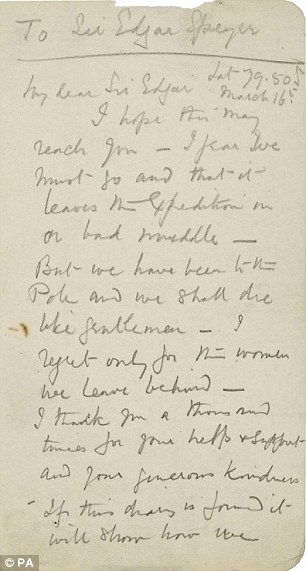 To Sir Edgar Speyer
Lat 79.50 S
March 16th
My dear Sir Edgar
I hope this may
reach you – I fear we
must go and that it
leaves the Expedition in
a bad muddle –
But we have been to the
Pole and we shall die
like gentlemen – I
regret only for the women
we leave behind –
I thank you a thousand
times for your help & support
and your generous kindness
If this diary is found it
will show how we
© PA